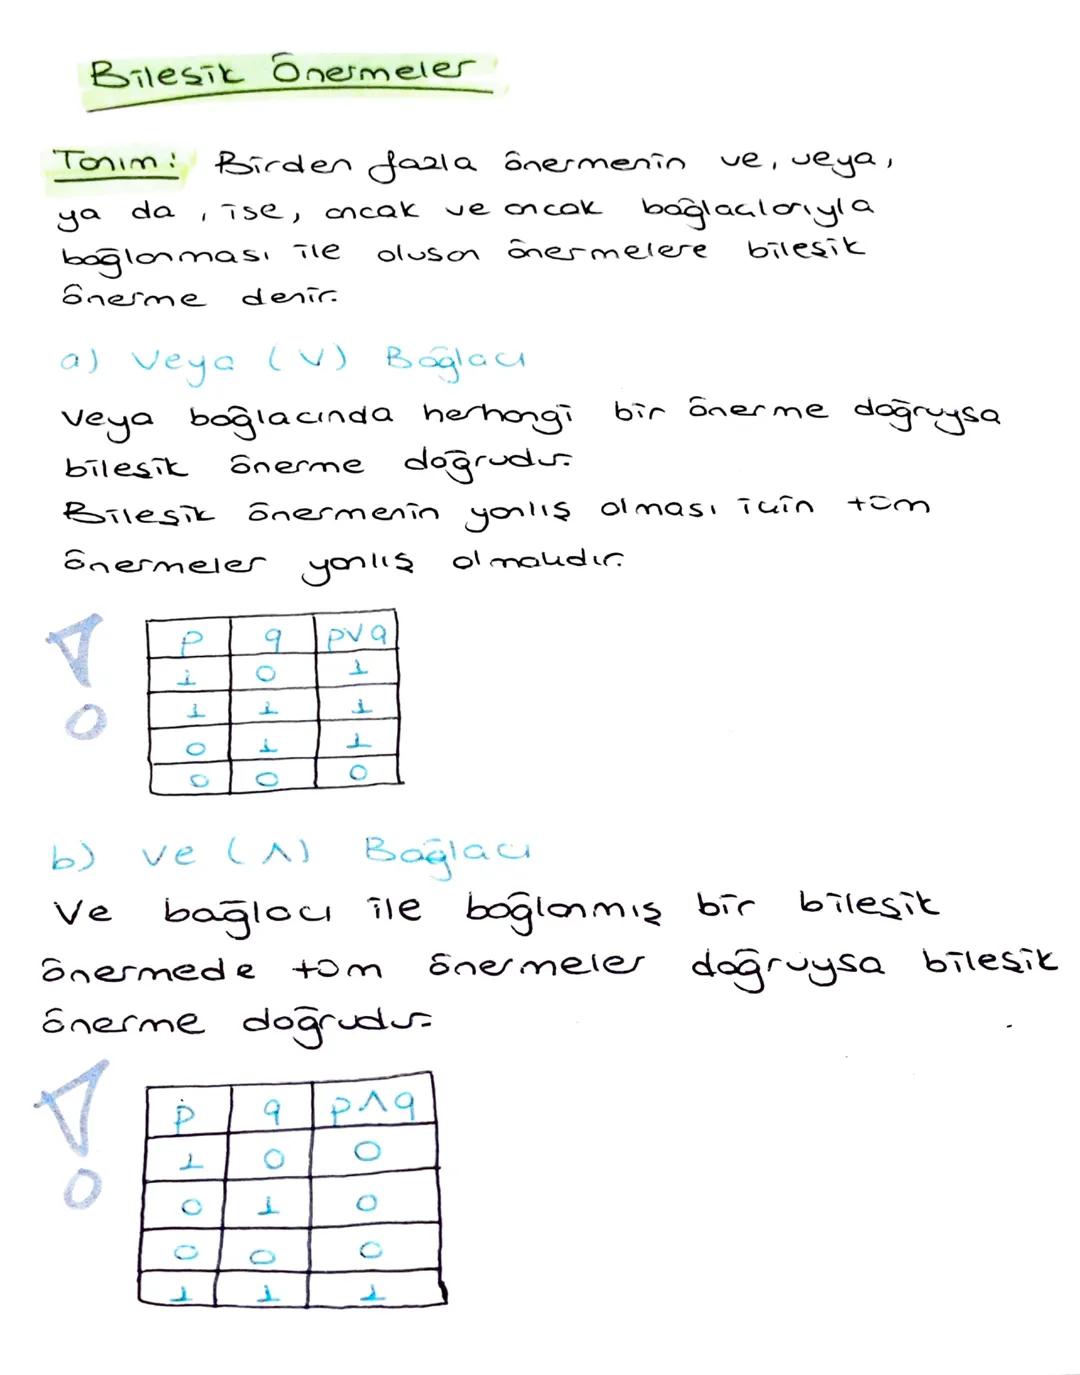 Bileşik Önermeler
Tanım: Birden fazla önermenin ve, veya,
ya da, ise, ancak ve ancak bağlaçlarıyla
bağlanması ile oluşan önermelere bileşik
önerme denir.
a) Veya (V) Bağlacı
Veya bağlacında herhangi bir önerme doğruysa
bileşik önerme doğrudur.
Bileşik önermenin yanlış olması için tüm
önermeler yanlış olmalıdır.
p q p∨q
1 0 1
1 1 1
0 1 1
0 0 0
b) Ve (Λ) Bağlacı
Ve bağlacı ile bağlanmış bir bileşik
önermede tüm önermeler doğruysa bileşik
önerme doğrudur.
p q p∧q
1 0 0
0 1 0
0 0 0
1 1 1